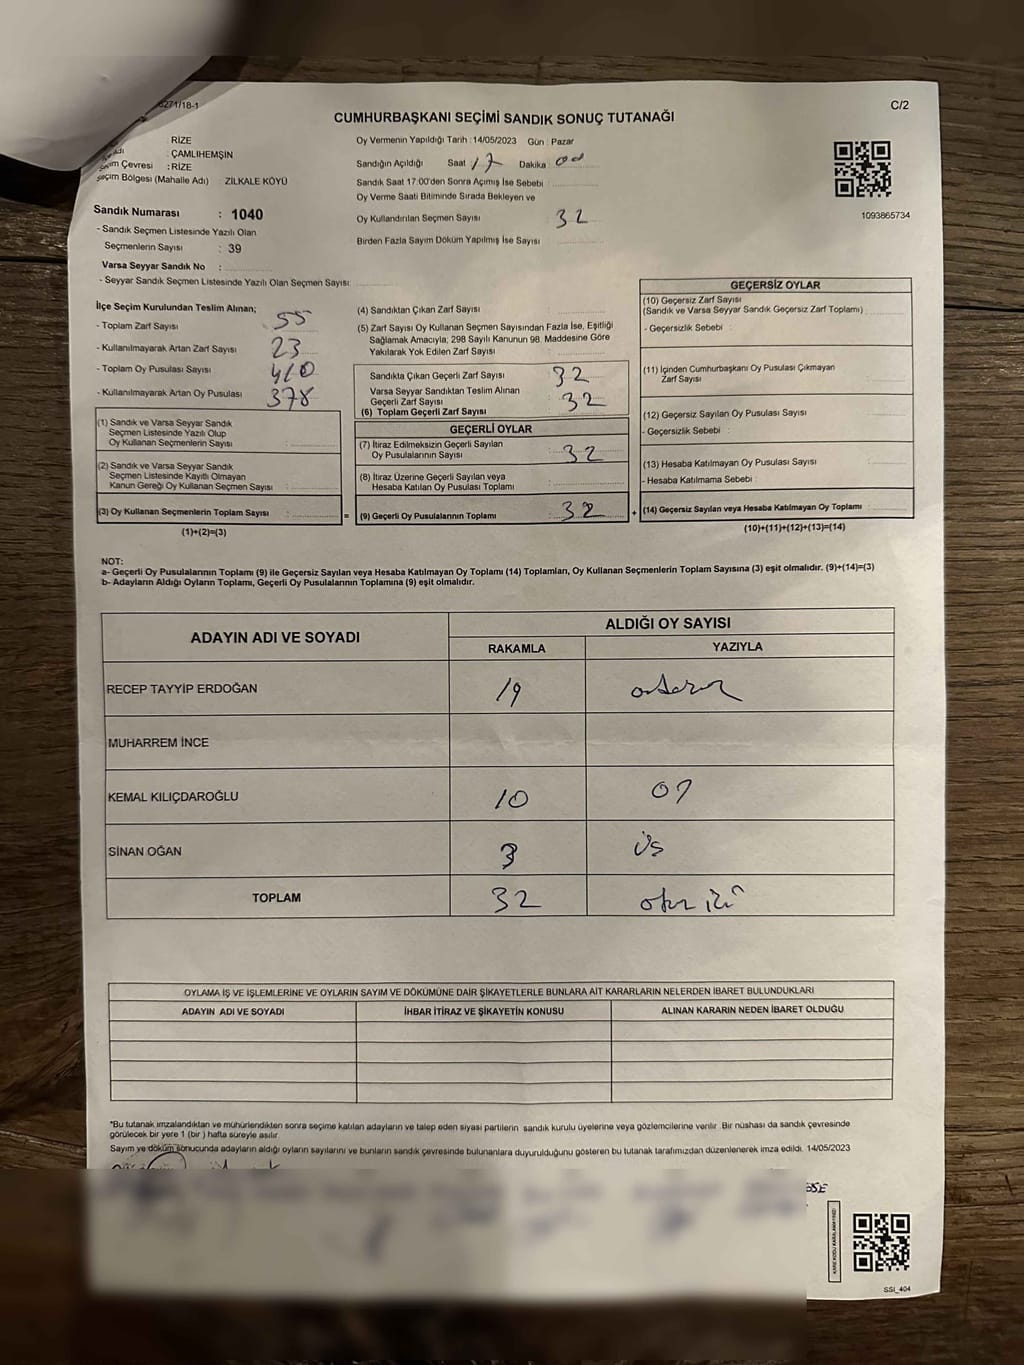 5271/18-1
C/2
CUMHURBAŞKANI SEÇİMİ SANDIK SONUÇ TUTANAĞI
RİZE
ÇAMLIHEMŞİN
Seçim Çevresi : RİZE
Seçim Bölgesi (Mahalle Adı) : ZİLKALE KÖYÜ
Sandık Numarası : 1040
- Sandık Seçmen Listesinde Yazılı Olan
Seçmenlerin Sayısı : 39
Varsa Seyyar Sandık No :
- Seyyar Sandık Seçmen Listesinde Yazılı Olan Seçmen Sayısı:
Oy Vermenin Yapıldığı Tarih : 14/05/2023 Gün : Pazar
Sandığın Açıldığı Saat 17 Dakika : 00
Sandık Saat 17:00'den Sonra Açımış İse Sebebi :
Oy Verme Saati Bitiminde Sırada Bekleyen ve
Oy Kullandırılan Seçmen Sayısı : 32
Birden Fazla Sayım Döküm Yapılmış İse Sayısı :
1093865734
İlçe Seçim Kurulundan Teslim Alınan;
- Toplam Zarf Sayısı : 55
- Kullanılmayarak Artan Zarf Sayısı : 23
- Toplam Oy Pusulası Sayısı : 410
- Kullanılmayarak Artan Oy Pusulası : 378
(1) Sandık ve Varsa Seyyar Sandık
Seçmen Listesinde Yazılı Olup
Oy Kullanan Seçmenlerin Sayısı :
(2) Sandık ve Varsa Seyyar Sandık
Seçmen Listesinde Kayıtlı Olmayan
Kanun Gereği Oy Kullanan Seçmen Sayısı :
(3) Oy Kullanan Seçmenlerin Toplam Sayısı :
(1)+(2)=(3)
(4) Sandıktan Çıkan Zarf Sayısı :
(5) Zarf Sayısı Oy Kullanan Seçmen Sayısından Fazla İse, Eşitliği
Sağlamak Amacıyla; 298 Sayılı Kanunun 98. Maddesine Göre
Yakılarak Yok Edilen Zarf Sayısı :
Sandıkta Çıkan Geçerli Zarf Sayısı : 32
Varsa Seyyar Sandıktan Teslim Alınan
Geçerli Zarf Sayısı : 32
(6) Toplam Geçerli Zarf Sayısı
GEÇERLİ OYLAR
(7) İtiraz Edilmeksizin Geçerli Sayılan
Oy Pusulalarının Sayısı : 32
(8) İtiraz Üzerine Geçerli Sayılan veya
Hesaba Katılan Oy Pusulası Toplamı :
= (9) Geçerli Oy Pusulalarının Toplamı : 32
GEÇERSİZ OYLAR
(10) Geçersiz Zarf Sayısı
(Sandık ve Varsa Seyyar Sandık Geçersiz Zarf Toplamı) :
- Geçersizlik Sebebi :
(11) İçinden Cumhurbaşkanı Oy Pusulası Çıkmayan
Zarf Sayısı :
(12) Geçersiz Sayılan Oy Pusulası Sayısı :
- Geçersizlik Sebebi :
(13) Hesaba Katılmayan Oy Pusulası Sayısı :
- Hesaba Katılmama Sebebi :
+ (14) Geçersiz Sayılan veya Hesaba Katılmayan Oy Toplamı :
(10)+(11)+(12)+(13)=(14)
NOT:
a- Geçerli Oy Pusulalarının Toplamı (9) ile Geçersiz Sayılan veya Hesaba Katılmayan Oy Toplamı (14) Toplamları, Oy Kullanan Seçmenlerin Toplam Sayısına (3) eşit olmalıdır. (9)+(14)=(3)
b- Adayların Aldığı Oyların Toplamı, Geçerli Oy Pusulalarının Toplamına (9) eşit olmalıdır.
ADAYIN ADI VE SOYADI
ALDIĞI OY SAYISI
RAKAMLA YAZIYLA
RECEP TAYYİP ERDOĞAN 19
MUHARREM İNCE
KEMAL KILIÇDAROĞLU 10 on
SİNAN OĞAN 3 üş
TOPLAM 32 otuz iki
OYLAMA İŞ VE İŞLEMLERİNE VE OYLARIN SAYIM VE DÖKÜMÜNE DAİR ŞİKAYETLERLE BUNLARA AİT KARARLARIN NELERDEN İBARET BULUNDUKLARI
ADAYIN ADI VE SOYADI İHBAR İTİRAZ VE ŞİKAYETİN KONUSU ALINAN KARARIN NEDEN İBARET OLDUĞU
*Bu tutanak imzalandıktan ve mühürlendikten sonra seçime katılan adayların ve talep eden siyasi partilerin sandık kurulu üyelerine veya gözlemcilerine verilir. Bir nüshası da sandık çevresinde
görülecek bir yere 1 (bir) hafta süreyle asılır.
Sayım ve döküm sonucunda adayların aldığı oyların sayılarını ve bunların sandık çevresinde bulunanlara duyurulduğunu gösteren bu tutanak tarafımızdan düzenlenerek imza edildi. 14/05/2023
SSİ_404